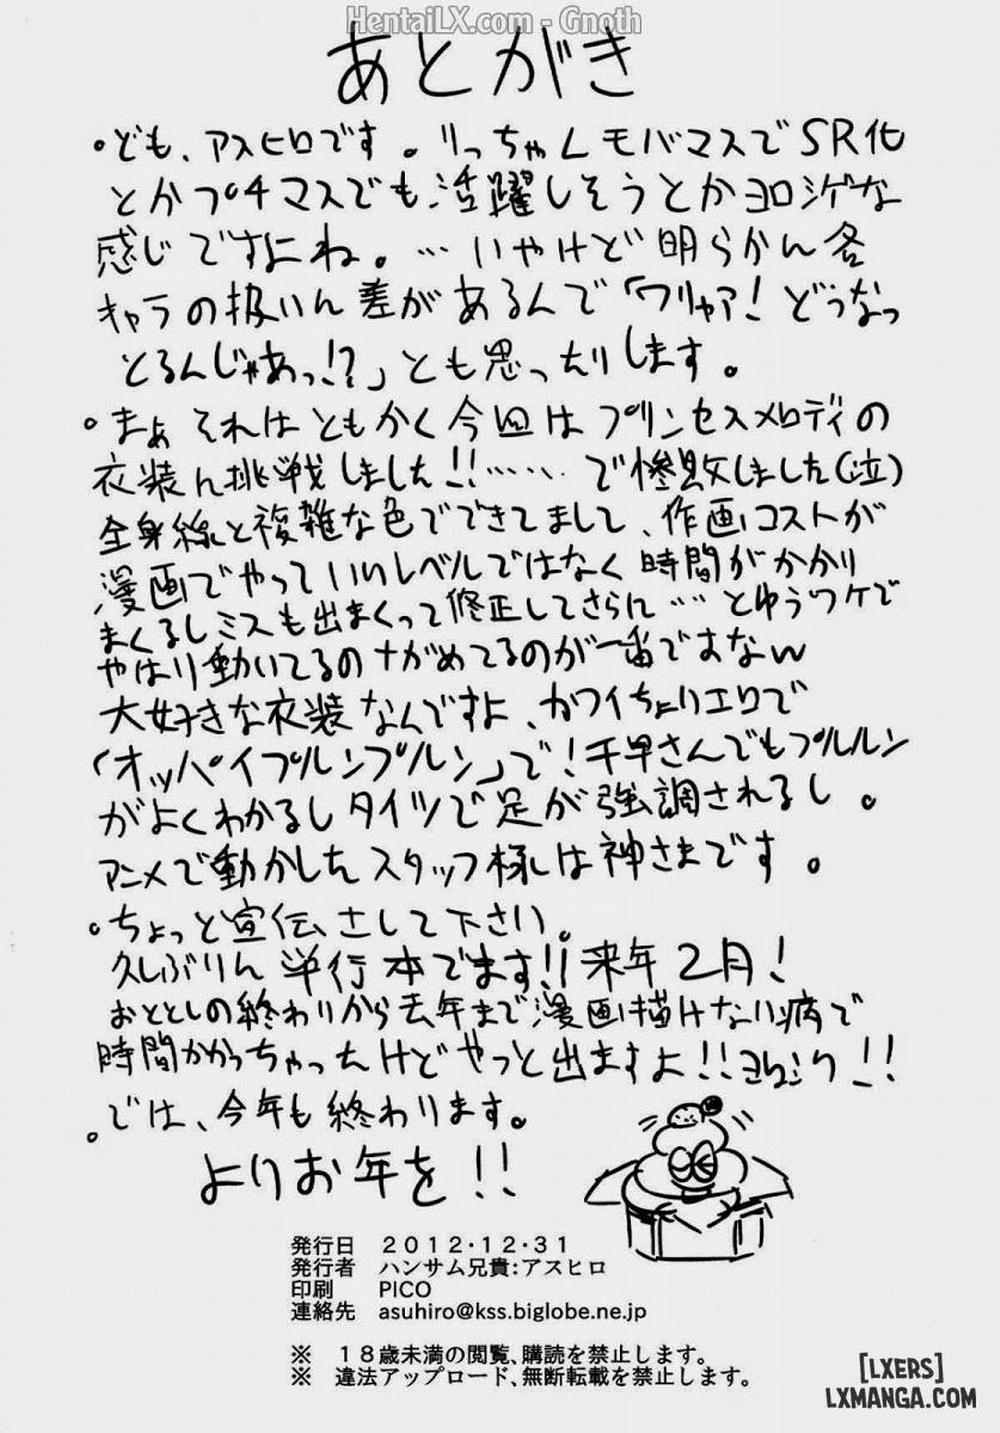 HentaiLX.com - Gnoth
あとがき
・ども、アスヒロです。りっちゃんモバマスでSR化
とかプチマスでも活躍しそうとかヨロシゲな
感じですよね。…いやけど明らかん各
キャラの扱いん差があるんで「ワリャア!どうなっ
とるんじゃあっ!?」とも思ったりします。
・まぁそれはともかく今回はプリンセスメロディの
衣装ん挑戦しました!!……で惨敗しました(泣)
全身線と複雑な色でできてまして、作画コストが
漫画でやっていいレベルではなく時間がかかり
まくるしミスも出まくって修正してさらに…とゆうワケで
やはり動いてるのナがめてるのが一番ですなw
大好きな衣装なんですよ、カワイイちょりエロで
「オッパイプルンプルン」で!千早さんでもプルルン
がよくわかるしタイツで足が強調されるし。
アニメで動かしたスタッフ様は神さまです。
・ちょっと宣伝さして下さい。
久しぶりん単行本でます!!来年2月!
おととしの終わりから去年まで漫画描けない病で
時間かかっちゃったけどやっと出ますよ!!ヨロシク!!
・では、今年も終わります。
よりお年を!!
発行日 2012・12・31
発行者 ハンサム兄貴:アスヒロ
印刷 PICO
連絡先 asuhiro@kss.biglobe.ne.jp
※ 18歳未満の閲覧、購読を禁止します。
※ 違法アップロード、無断転載を禁止します。
[LXERS]
LXMANGA.COM